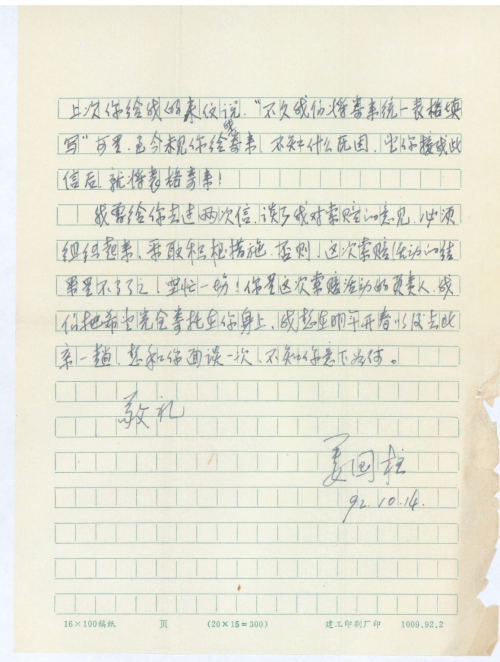 上次你给我的来信说，“不久我们将寄来统一表格填
写”可是，至今未见你给我寄来，不知什么原因，当你接我此
信后，就将表格寄来！
我曾给你去过两次信，谈了我对索赔的意见，必须
组织起来，采取积极措施，否则，这次索赔活动的结
果是不了了之，空忙一场！你是这次索赔活动的负责人，我
们把希望完全寄托在你身上，我想在明年开春以后去北
京一趟，想和你面谈一次，不知你意下如何。
敬礼
姜国柱
92.10.14.
16×100稿纸 页 (20×15=300) 建工印刷厂印 1009.92.2